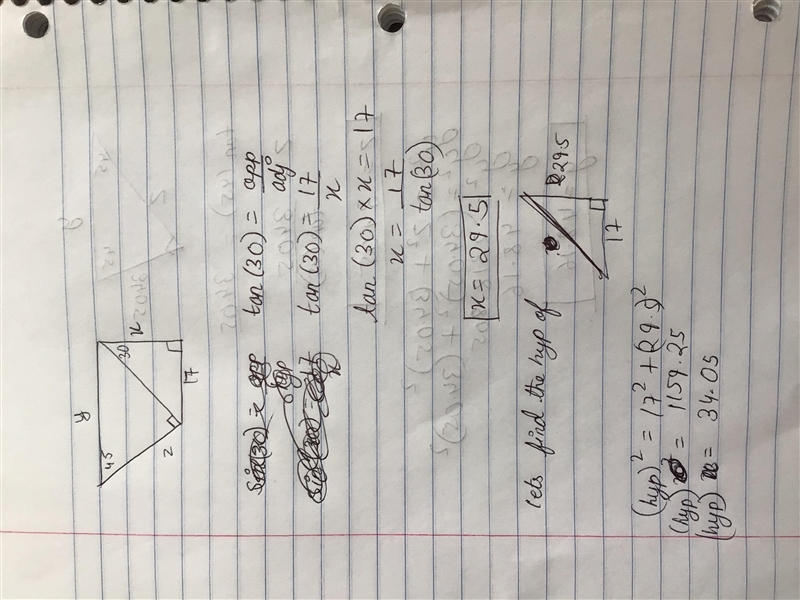 y
45
30
x
z
17
tan(30) = opp/adj
tan(30) = 17/x
tan(30) × x = 17
x = 17/tan(30)
x = 29.5
lets find the hyp of
29.5
17
(hyp)² = 17² + (29.5)²
(hyp)² = 1159.25
(hyp) = 34.05